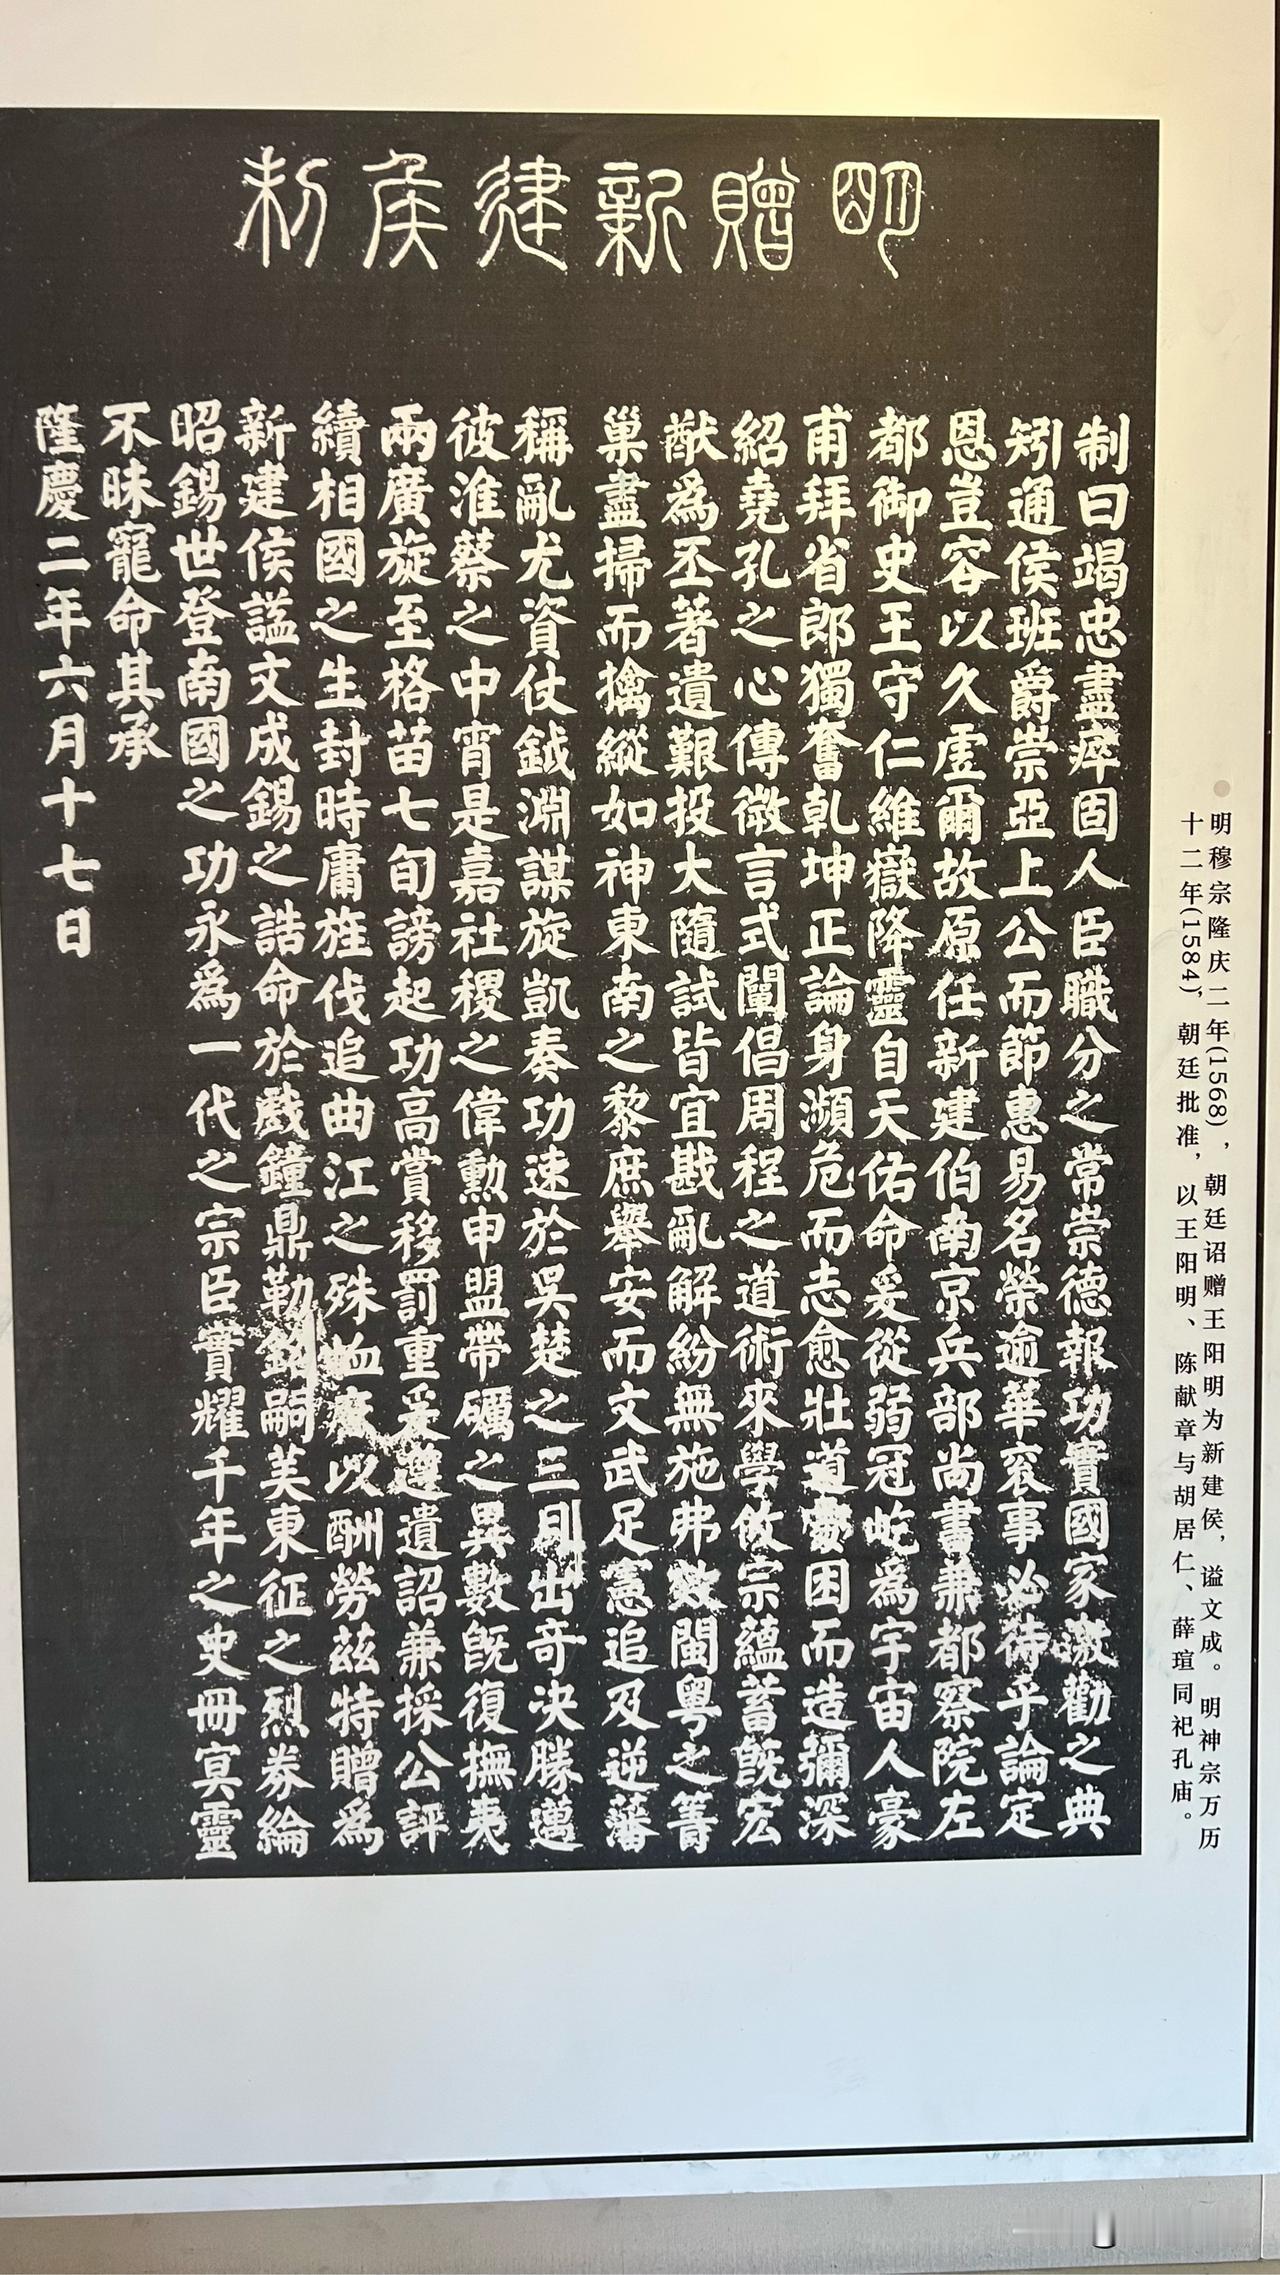 明贈新建侯制
制曰竭忠盡瘁固人臣職分之常崇德報功實國家激勸之典
矧通侯班爵崇亞上公而節惠易名榮逾華袞事必待乎論定
恩豈容以久虛爾故原任新建伯南京兵部尚書兼都察院左
都御史王守仁維嶽降靈自天佑命爰從弱冠屹為宇宙人豪
甫拜省郎獨奮乾坤正論身瀕危而志愈壯道處困而造彌深
紹堯孔之心傳微言式闡倡周程之道術來學攸宗蘊蓄旣宏
猷為丕著遺艱投大隨試皆宜戡亂解紛無施弗效閩粵之箐
巢盡掃而擒縱如神東南之黎庶舉安而文武足憲追及逆藩
稱亂尤資仗鉞淵謀旋凱奏功速於吳楚之三月出奇決勝邁
彼淮蔡之中宵是嘉社稷之偉勳申盟帶礪之異數旣復撫夷
兩廣旋至格苗七旬謗起功高賞移罰重爰遵遺詔兼採公評
續相國之生封時庸旌伐追曲江之殊恤庶以酬勞茲特贈為
新建侯謚文成錫之誥命於戲鐘鼎勒銘嗣美東征之烈券綸
昭錫世登南國之功永為一代之宗臣實耀千年之史冊冥靈
不昧寵命其承
隆慶二年六月十七日
明穆宗隆庆二年(1568)，朝廷诏赠王阳明为新建侯，谥文成。明神宗万历
十二年(1584)，朝廷批准，以王阳明、陈献章与胡居仁、薛瑄同祀孔庙。